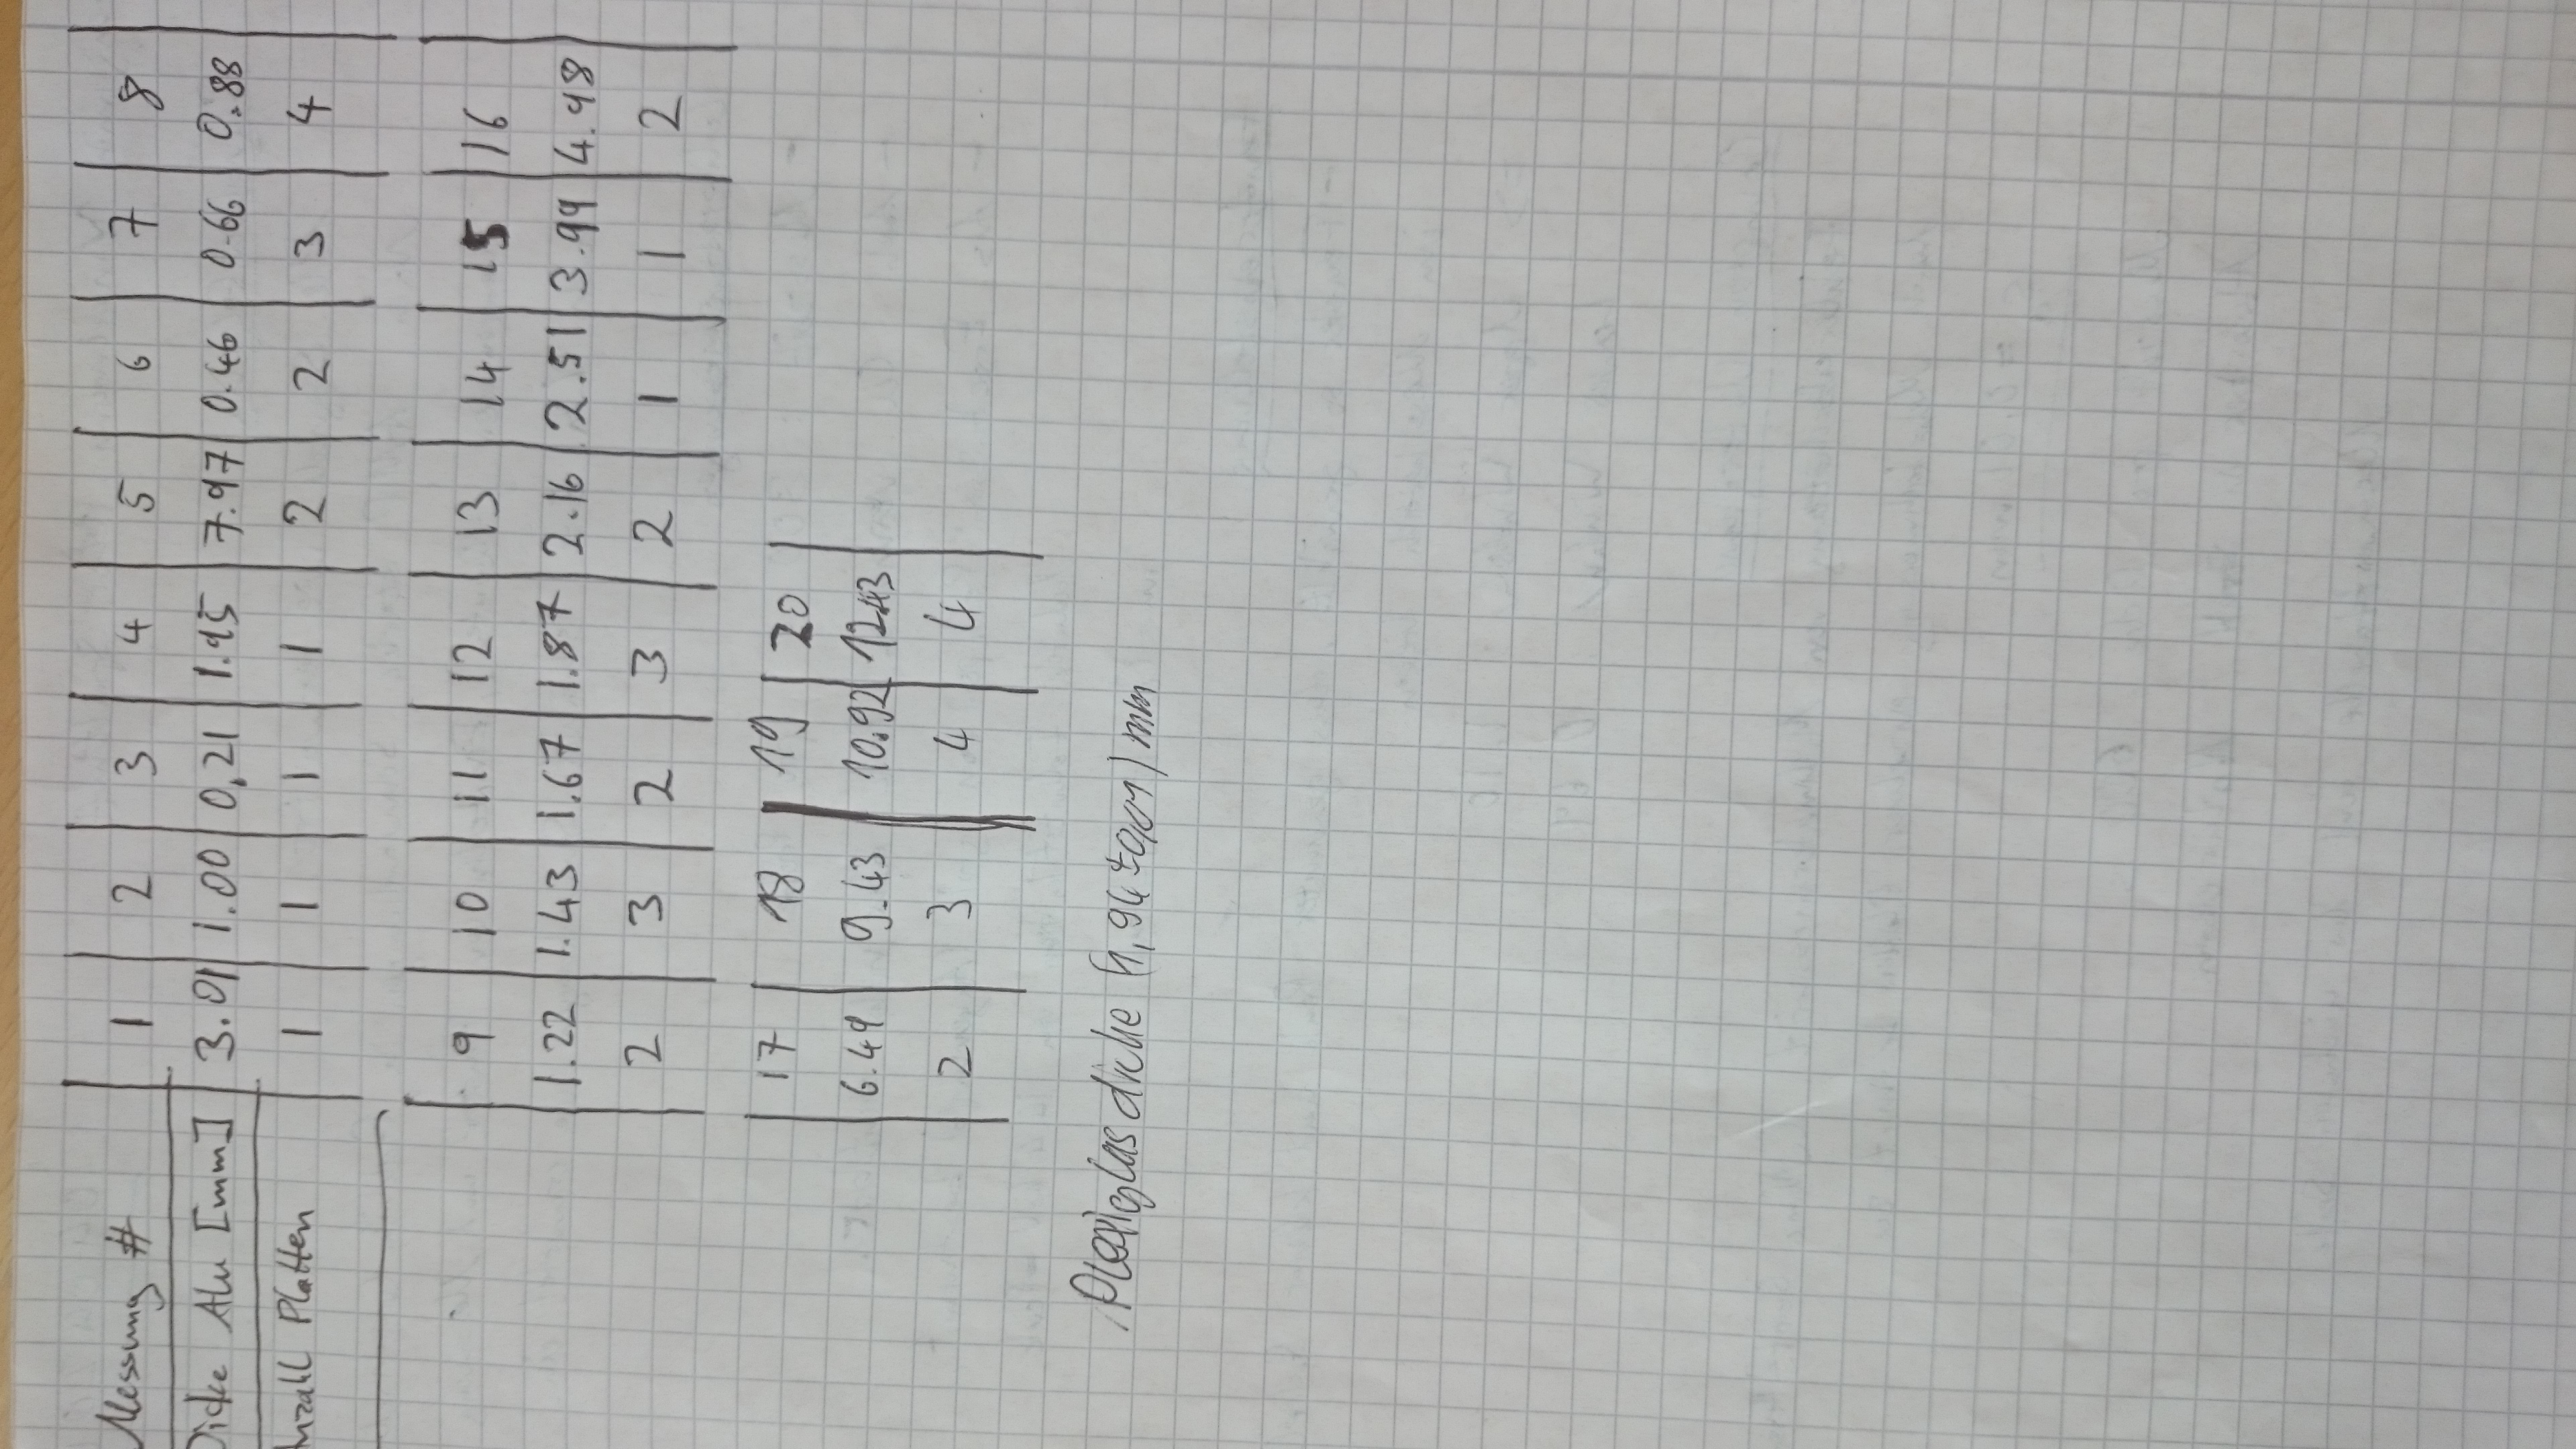 Messung # 1 2 3 4 5 6 7 8
Dicke Alu [mm] 3.01 1.00 0,21 1.95 7.97 0.46 0.66 0.88
Anzahl Platten 1 1 1 1 2 2 3 4
9 10 11 12 13 14 15 16
1.22 1.43 1.67 1.87 2.16 2.51 3.99 4.98
2 3 2 3 2 1 1 2
17 18 19 20
6.49 9.43 10.92 12.43
2 3 4 4
Plexiglas dicke (1,94 ± 0,01) mm